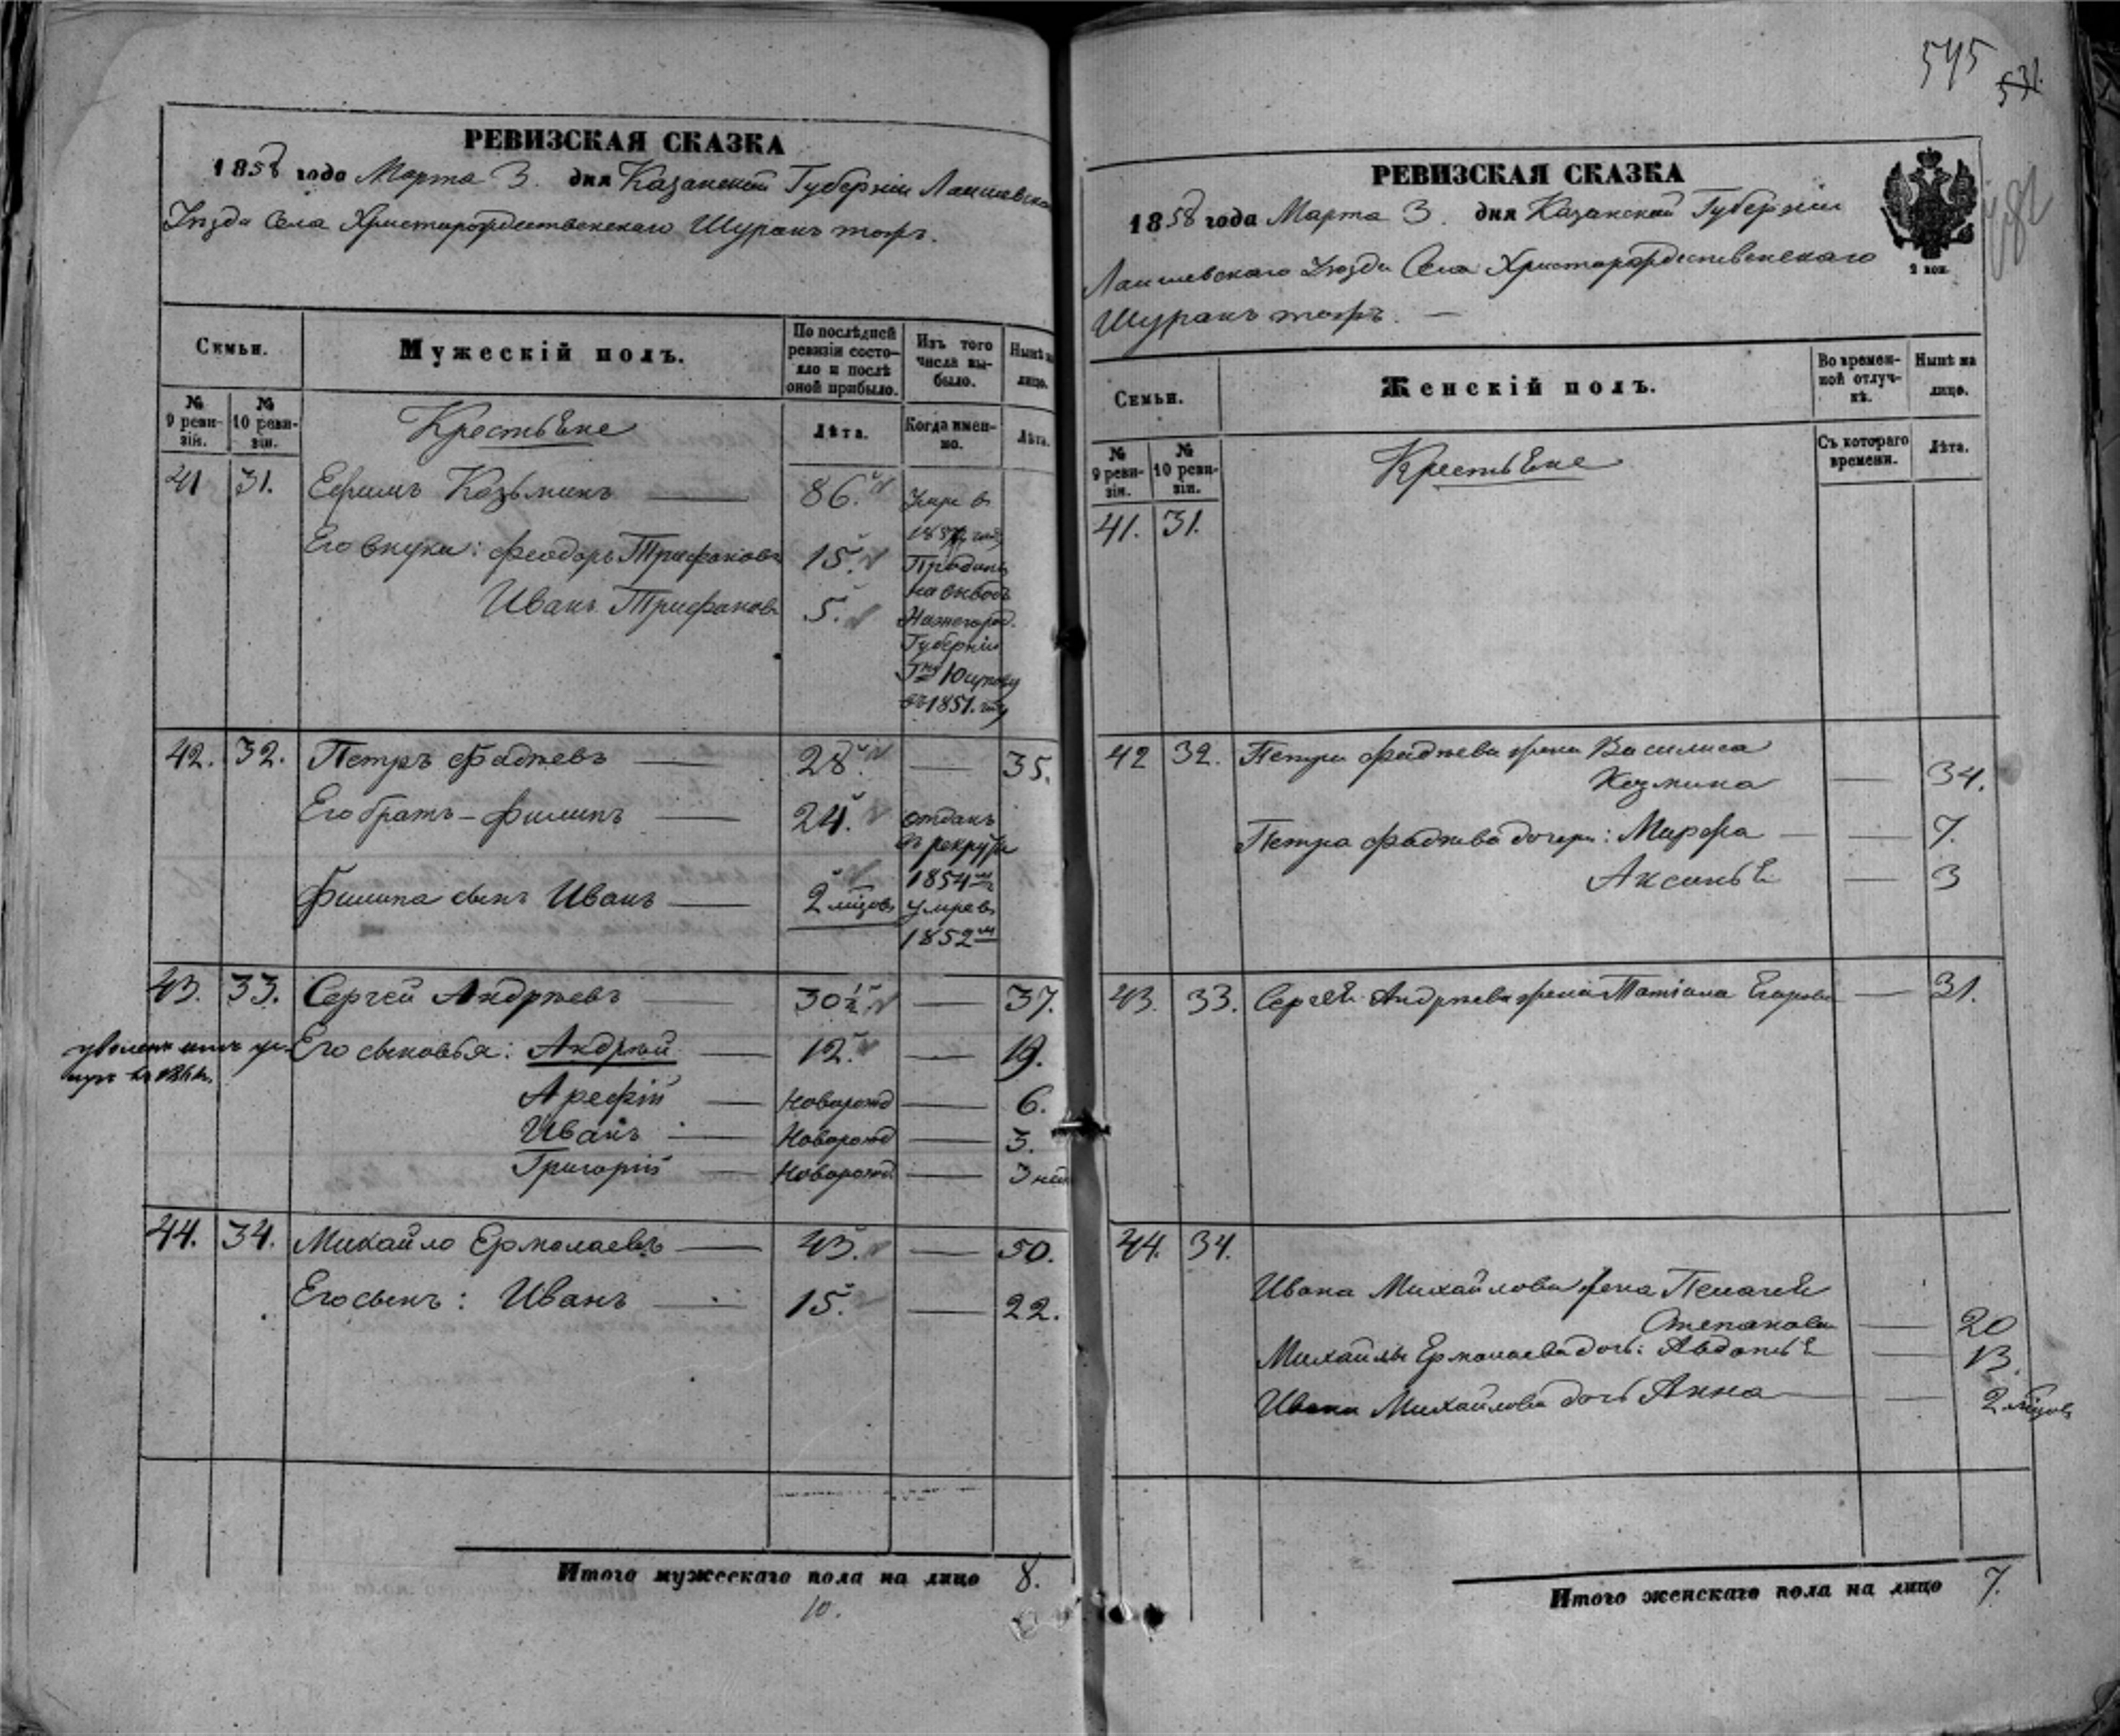 РЕВИЗСКАЯ СКАЗКА
1858 года Марта 3. дня Казанской Губерніи Лаишевскаго
Уѣзда Села Христорождественскаго Шуранъ тожъ.
Семьи.
Мужескій полъ.
По послѣдней ревизіи состояло и послѣ оной прибыло.
Изъ того числа выбыло.
Нынѣ на лицо.
№ 9 ревизіи.
№ 10 ревизіи.
Крестьяне
Лѣта.
Когда именно.
Лѣта.
41 31. Ефимъ Козьминъ — 86. Умре в
185 году
Его внуки: Феодоръ Трифоновъ 15. Проданы
на вывозъ
Иванъ Трифоновъ 5. Нижегород.
Губерніи
въ 1851. году
42. 32. Петръ Фадѣевъ — 28. — 35.
Его братъ – Филипъ — 24. отданъ
въ рекруты
1854 м
Филипа сынъ Иванъ — 2 мѣсцов умре въ
1852 м
43. 33. Сергей Андрѣевъ — 30½ — 37.
Его сыновья: Андрѣй — 12. — 19.
Арефій — Новорожд — 6.
Иванъ — Новорожд — 3.
Григорій — Новорожд — 3 нед
44. 34. Михайло Ермолаевъ — 43. — 50.
Его сынъ: Иванъ — 15. — 22.
Итого мужескаго пола на лицо 8.
10.
545
531.
РЕВИЗСКАЯ СКАЗКА
1858 года Марта 3. дня Казанской Губерніи
Лаишевскаго Уѣзда Села Христорождественскаго
Шуранъ тожъ. —
2 коп.
Семьи.
Женскій полъ.
Во временной отлучкѣ.
Нынѣ на лицо.
№ 9 ревизіи.
№ 10 ревизіи.
Крестьяне
Съ котораго времени.
Лѣта.
41. 31.
42 32. Петра Фадѣева жена Василиса
Козмина — 34.
Петра Фадѣева дочери: Марфа — — 7.
Аксинья — 3
43. 33. Сергея Андрѣева жена Татіана Егорова — 31.
44. 34.
Ивана Михайлова жена Пелагея
Степанова — 20
Михайлы Ермолаева дочь: Авдотья — 13.
Ивана Михайлова дочь Анна — — 2 мѣсцов
Итого женскаго пола на лицо 7.